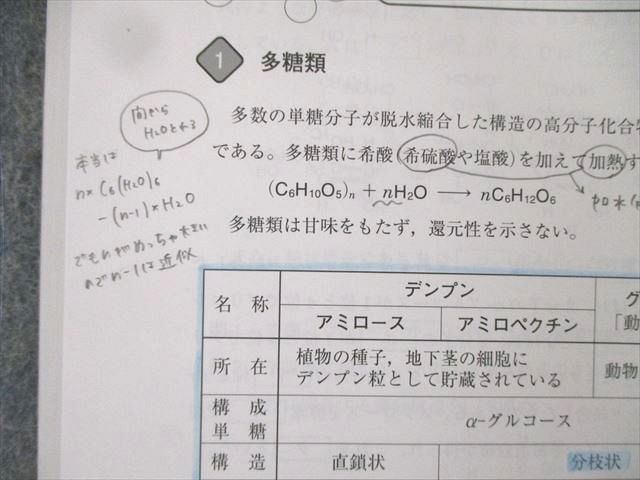 1 多糖類
間から
H2Oとれる
多数の単糖分子が脱水縮合した構造の高分子化合
である。多糖類に希酸(希硫酸や塩酸)を加えて加熱す
本当は
n×C6(H2O)6
-(n-1)×H2O
(C6H10O5)n + nH2O → nC6H12O6
加水
でもnがめっちゃ大きい
のでn-1は近似
多糖類は甘味をもたず，還元性を示さない。
名称 デンプン グ
アミロース アミロペクチン 「動
所在 植物の種子，地下茎の細胞に 動物
デンプン粒として貯蔵されている
構成
単糖 α-グルコース
構造 直鎖状 分枝状